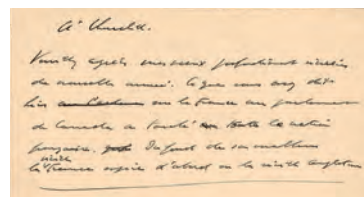 A Churchill.
Veuillez agréer mes vœux                      sincères
de nouvelle année. Ce que vous avez dit
hier              sur la France au parlement
du Canada a touché                   la nation
française.         Du fond de son malheur
la vieille France espère d'abord en la vieille Angleterre